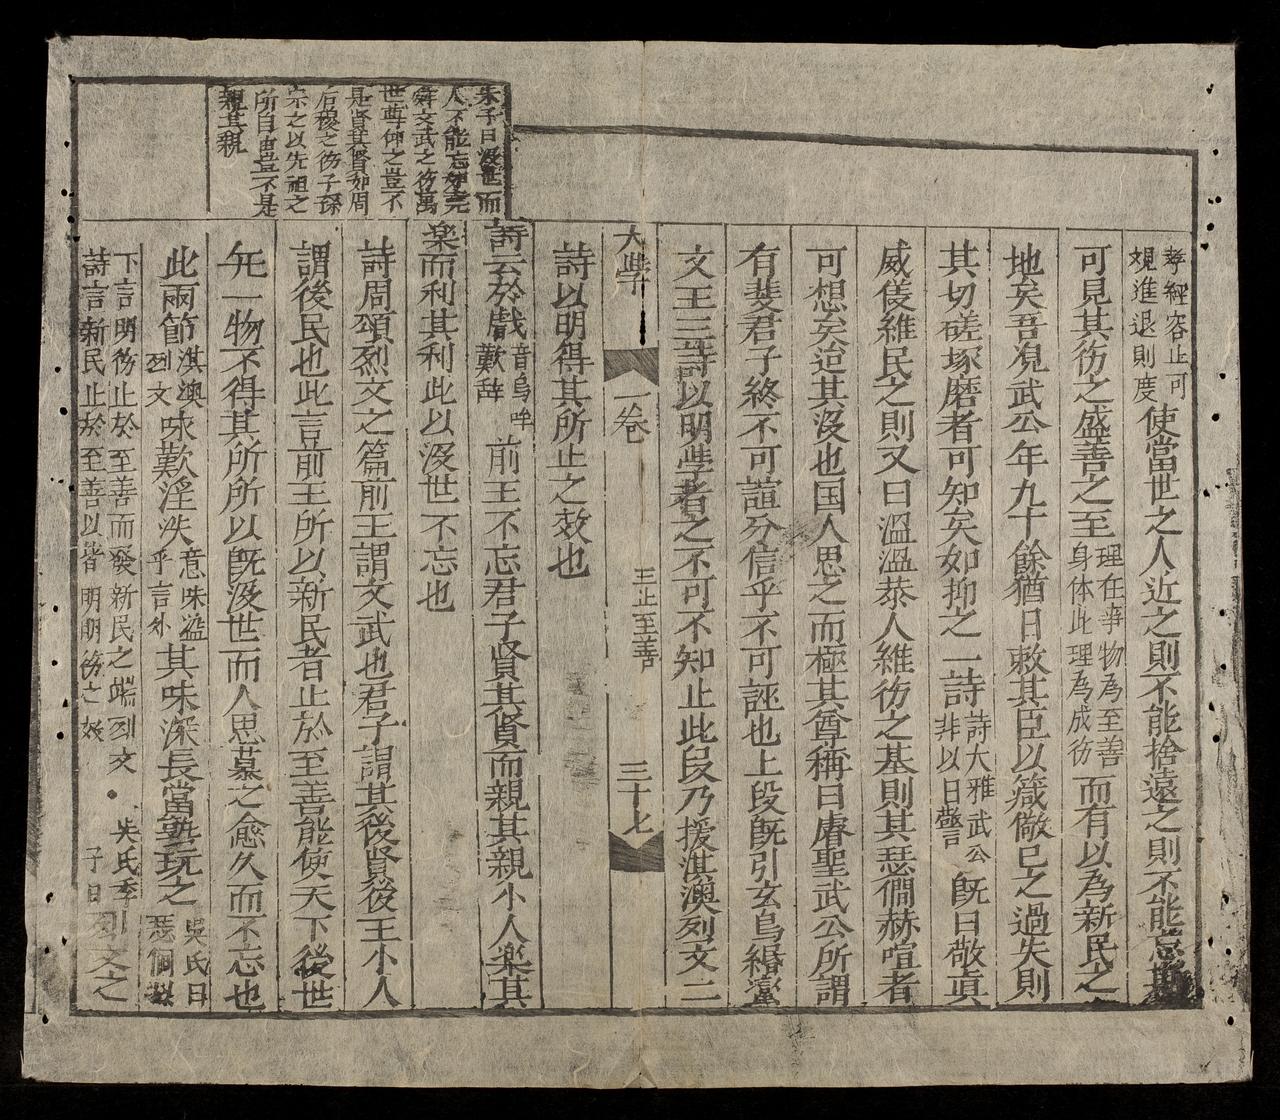 孝經容止可
覌進退則度
使當世之人近之則不能捨遠之則不能忘其
可見其徳之盛善之至
理在事物為至善
身体此理為成徳
而有以為新民之
地矣吾覌武公年九十餘猶日敕其臣以箴儆已之過失則
其切磋琢磨者可知矣如抑之一詩
詩大雅武公
非以日警
既曰敬眞
威儀維民之則又曰溫溫恭人維徳之基則其瑟僩赫喧者
可想矣迨其沒也国人思之而極其尊稱曰睿聖武公所謂
有斐君子終不可諠兮信乎不可誣也上段既引玄鳥緡蠻
文王三詩以明學者之不可不知止此叚乃援淇澳烈文二
大學 一卷 王止至善 三十七
詩以明得其所止之效也
朱子曰沒世而
人不能忘如堯
舜文武之徳萬
世尊仰之豈不
是賢其賢如周
后稷之徳子孫
宗之以先祖之
所自由豈不是
親其親
詩云於戲
音烏呼
歎辞
前王不忘君子賢其賢而親其親小人楽其
楽而利其利此以沒世不忘也
詩周頌烈文之篇前王謂文武也君子謂其後賢後王小人
謂後民也此言前王所以新民者止於至善能使天下後世
旡一物不得其所所以既沒世而人思慕之愈久而不忘也
此兩節
淇澳
烈文
咏歎淫泆
意味溢
乎言外
其味深長當熟玩之
吳氏曰
瑟僩
下言明徳止於至善而發新民之端烈文
詩言新民止於至善以著明明徳之效
吳氏季
子曰
烈文之